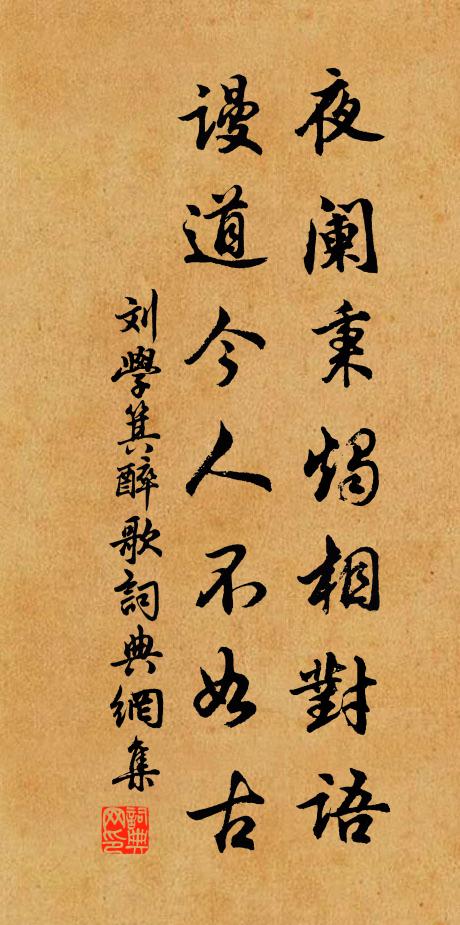 夜阑秉烛相對語
谩道今人不如古
刘學箕醉歌詞典網集
詞典网印